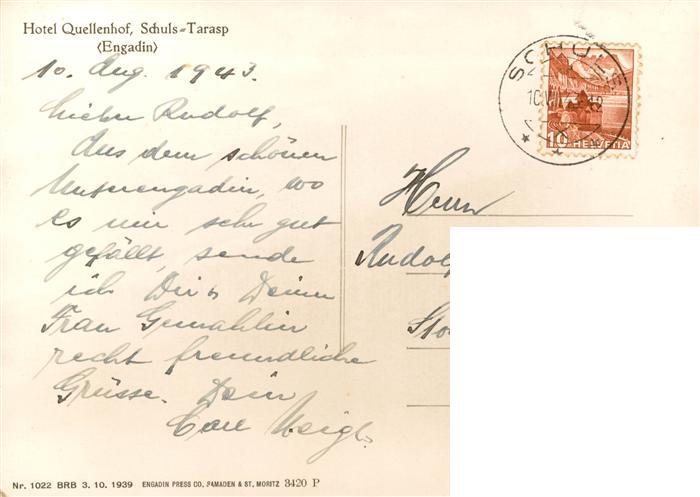 Hotel Quellenhof, Schuls-Tarasp
(Engadin)
10. Aug. 1943.
Lieber Rudolf,
Aus dem schönen
Unterengadin, wo
es mir sehr gut
gefällt, sende
ich Dir & Deiner
Frau Gemahlin
recht freundliche
Grüsse. Dein
Carl
SCHULS
10.VIII
10 HELVETIA
Herrn
Rudolf
Nr. 1022 BRB 3. 10. 1939 ENGADIN PRESS CO. SAMADEN & ST. MORITZ 3420 P